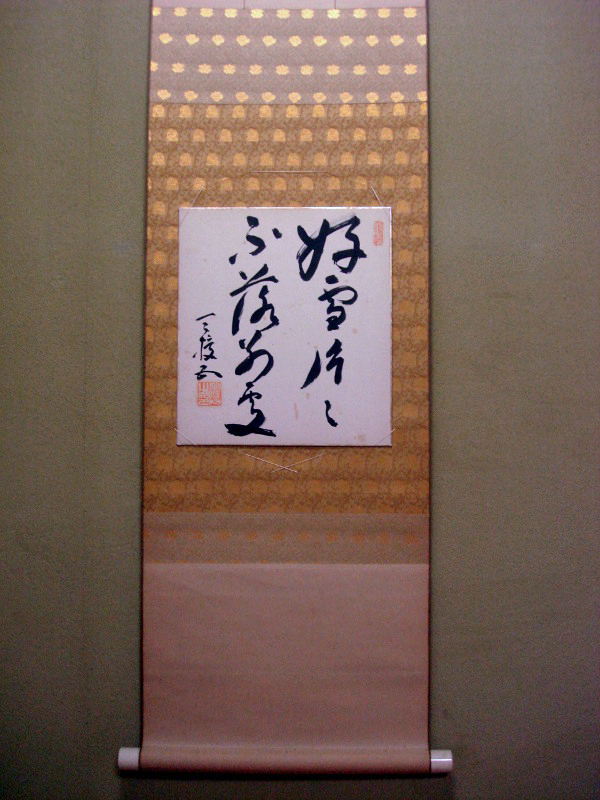 好雪片々
不落別處